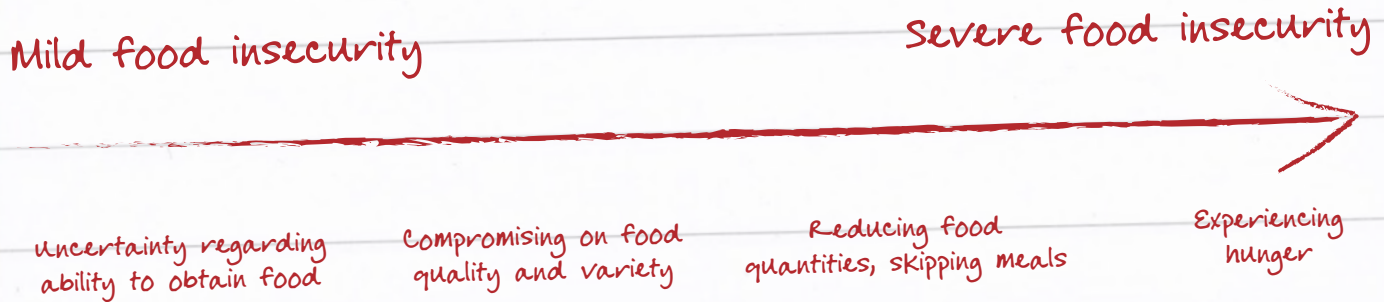 Mild food insecurity
Severe food insecurity
uncertainty regarding
ability to obtain food
Compromising on food
quality and variety
Reducing food
quantities, skipping meals
Experiencing
hunger